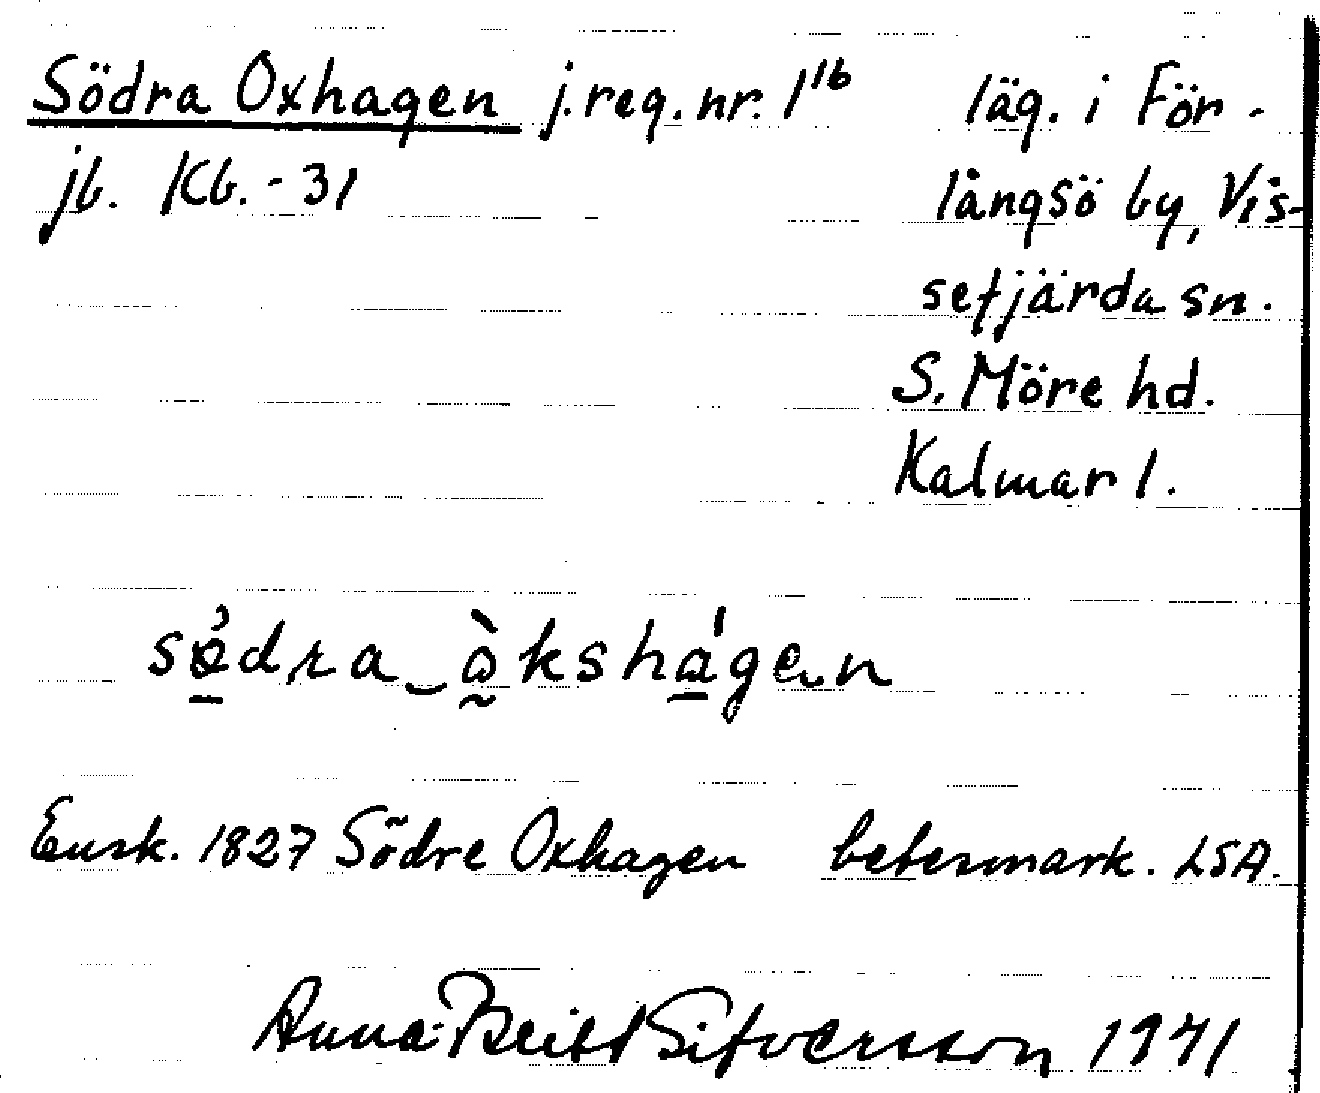 Södra Oxhagen j.reg.nr. 1¹⁶ läg. i För-
jb. Kb.-31 långsö by, Vis-
sefjärda sn.
S. Möre hd.
Kalmar l.
södra‿òkshágen
Ensk. 1827 Södre Oxhagen betesmark. LSA.
Anna-Britt Sifversson 1941